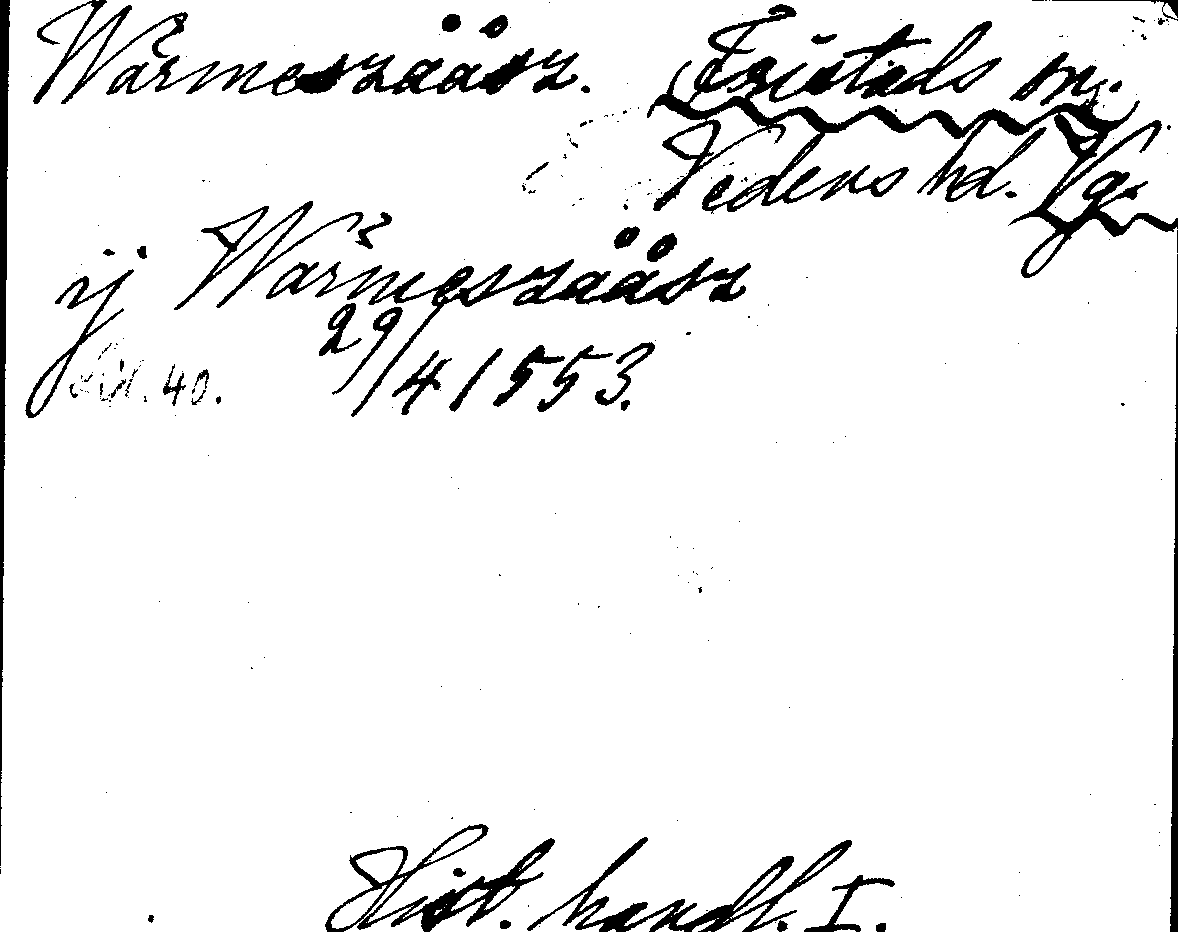 Wärmeszååsz. Fristads sn.
Vedens hd. Vg.
ij Wärmeszååsz
29/4 1553.
40.
Hist. handl. I.